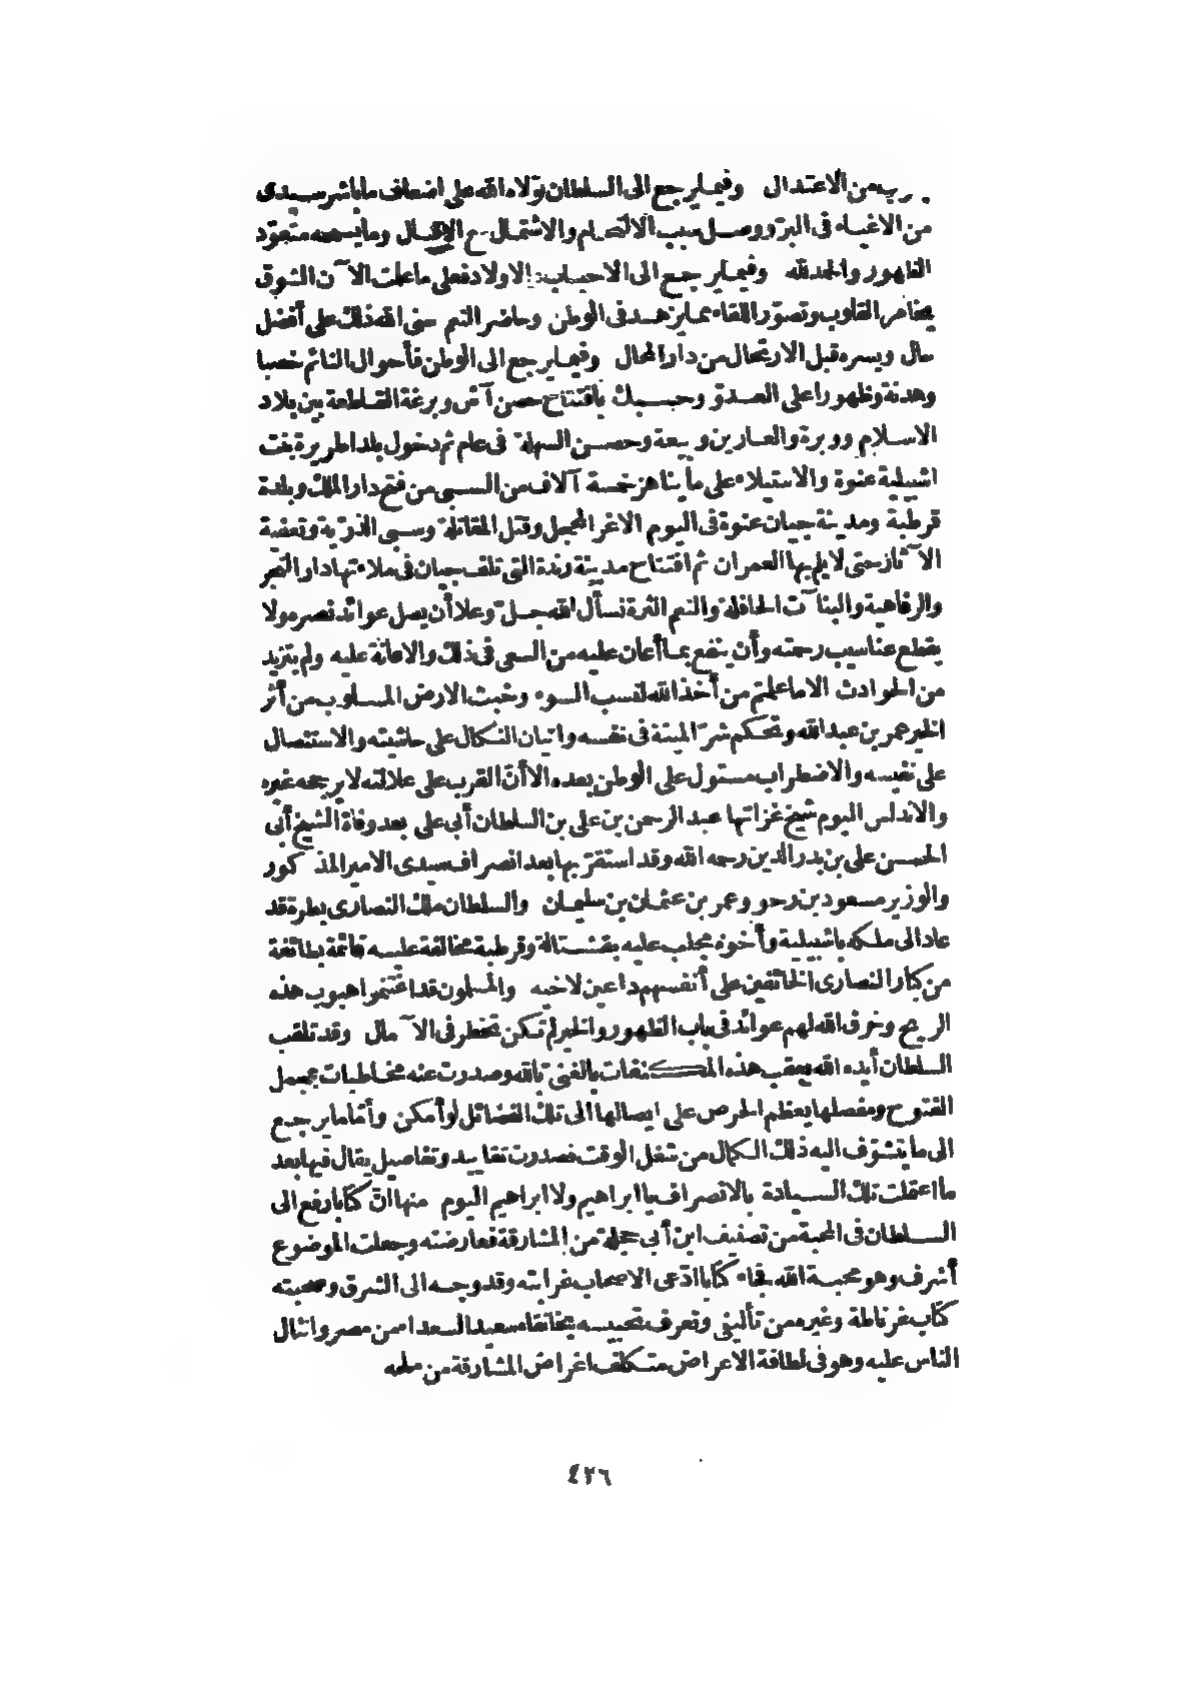 من الاعتدال وفيما يرجع الى السلطان تولاه الله على اضعاف ما باشر سيدى
من الاغياء فى البر ووصل سبب الالتحام والاشتمال مع الاقبال وما يسمعه متعوّد
الظهور والحمد لله وفيما يرجع الى الاحباب الاولاد فعلى ما علمت الآن الشوق
يخامر القلوب وتصوّر اللقاء مما يزهد فى الوطن وحاضر النعم سنى الله ذلك على أفضل
حال ويسره قبل الارتحال من دار المحال وفيما يرجع الى الوطن فأحوال النائم خصبا
وهدنة وظهورا على العدوّ وحسبك بافتتاح حصن آش وبرغة القاطعة بين بلاد
الاسلام ووبرة والعارين وبيغة وحصن السهلة فى عام ثم دخول بلد اطريرة بنت
اشبيلية عنوة والاستيلاء على ما يناهز خمسة آلاف من السبى من فتح دار الملك وبلدة
قرطبة ومدينة جيان عنوة فى اليوم الاغر المحجل وقتل المقاتلة وسبى الذرّية وتعفية
الآثار حتى لا يلم بها العمران ثم افتتاح مدينة رندة التى تلف جيان فى ملاءتها دار التجر
والرفاهية والبنآت الحافلة والنعم الثرة نسأل الله جلّ وعلا أن يصل عوائد نصره ولا
يقطع عنا سبب رحمته وأن ينفع بما أعان عليه من السعى فى ذلك والاعانة عليه ولم يتزيد
من الحوادث الا ما علمتم من أخذ الله لنسب السوء وخبث الارض المسلوب من أثر
الخير عمر بن عبد الله وتحكم شرّ الميتة فى نفسه واتيان النكال على حاشيته والاستئصال
على نفيسه والاضطراب مستول على الوطن بعده الا أنّ الغرب على علاته لا يرجحه غيره
والاندلس اليوم شيخ غزاتها عبد الرحمن بن على بن السلطان أبى على بعد وفاة الشيخ أبى
الحسن على بن بدر الدين رحمه الله وقد استقرّ بها بعد انصراف سيدى الامير المذكور
والوزير مسعود بن رحو وعمر بن عثمان بن سليمان والسلطان ملك النصارى بطرة قد
عاد الى ملكه باشبيلية وأخوه مجلب عليه بقشتالة وقرطبة مخالفة عليه قائمة بطائفة
من كبار النصارى الخائفين على أنفسهم داعين لاخيه والمسلمون قد اغتنموا هبوب هذه
الريح وخرق الله لهم عوائد فى باب الظهور والخير لم تكن تخطر فى الآمال وقد تلقب
السلطان أيده الله بعقب هذه المكيفات بالغنى بالله وصدرت عنه مخاطبات بمجمل
الفتوح ومفصلها يعظم الحرص على ايصالها الى تلك الفضائل لو أمكن وأمّا ما يرجع
الى ما تتشوّف اليه ذلك الكمال من شغل الوقت فصدرت تقاييد وتفاصيل يقال فيها بعد
ما اعقلت تلك السيادة بالانصراف يا ابراهيم ولا ابراهيم اليوم منها انّ كتابا رفع الى
السلطان فى المحبة من تصنيف ابن أبى حجلة من المشارقة فعارضته وجعلت الموضوع
أشرف وهو محبة الله فجاء كتابا ادّعى الاصحاب غرابته وقد وجه الى الشرق وصحبته
كتاب غرناطة وغيره من تأليفى وتعرف تحبيسه بخانقاه سعيد السعداء من مصر وانثال
الناس عليه وهو فى لطافة الاعراض متكلف اغراض المشارقة من ملحه
٤٣٦